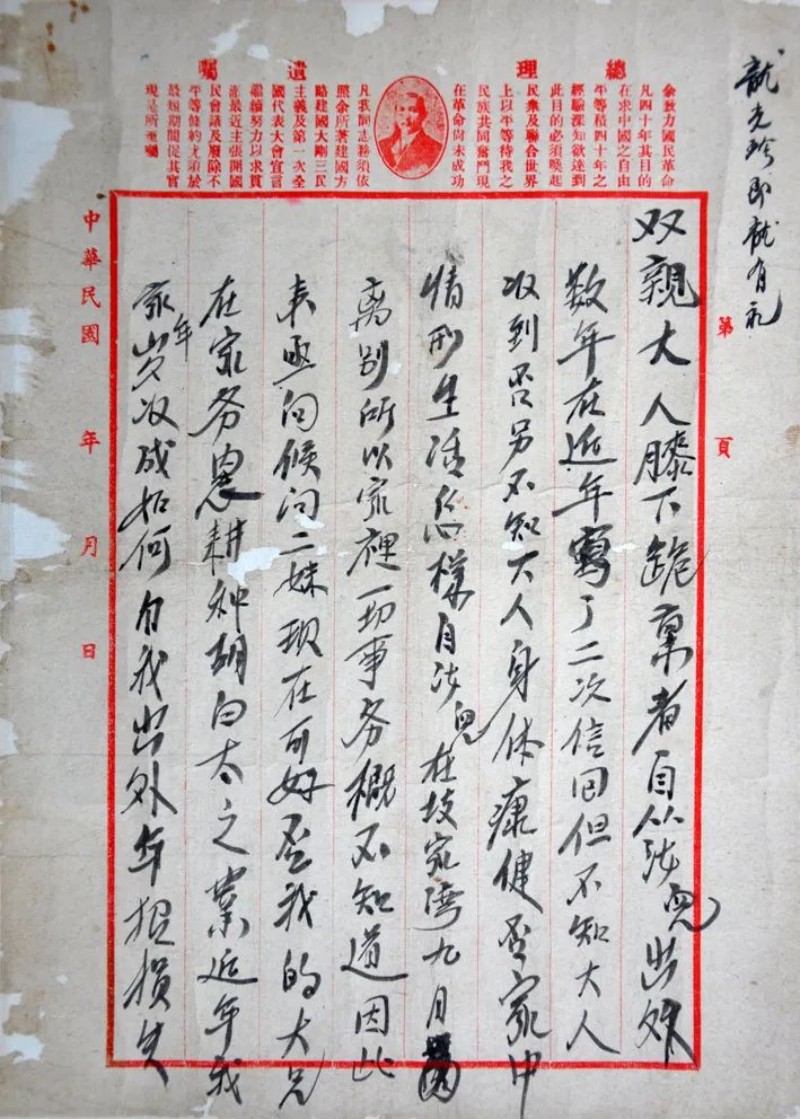 龍光珍即龍有礼
總理遺囑
余致力國民革命
凡四十年其目的
在求中國之自由
平等積四十年之
經驗深知欲達到
此目的必須喚起
民衆及聯合世界
上以平等待我之
民族共同奮鬥現
在革命尚未成功
凡我同志務須依
照余所著建國方
略建國大綱三民
主義及第一次全
國代表大會宣言
繼續努力以求貫
澈最近主張開國
民會議及廢除不
平等條約尤須於
最短期間促其實
現是所至囑
第 頁
双親大人膝下跪稟者自从兒出外
数年在近年寫了二次信回但不知大人
收到否另不知大人身体康健否家中
情形生活怎樣自兒在坟家湾九月
离别所以家裡一切事务概不知道因此
来函问候问二妹现在可好否我的大兄
在家务農耕种胡白太之業近年我
家年岁收成如何自我出外年损失
中華民國 年 月 日